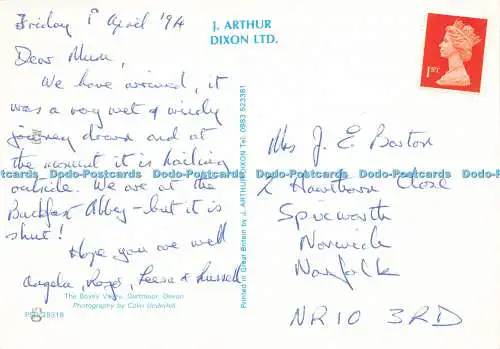 Friday 1st April '94
Dear Mum,
We have arrived, it
was a very wet & windy
journey down and at
the moment it is hailing
outside. We are at the
Buckfast Abbey - but it is
shut!
Hope you are well
Angela, Roger, & Russell
The Bovey Valley, Dartmoor, Devon
Photography by Colin Underhill
J. ARTHUR
DIXON LTD.
Printed in Great Britain by J. ARTHUR DIXON Tel: 0983 523381
1ST
Mrs J. E. Barton
2 Hawthorn Close
Spixworth
Norwich
Norfolk
NR10 3RD
Dodo-Postcards Dodo-Postcards Dodo-Postcards Dodo-Postcards Dodo-Postcards